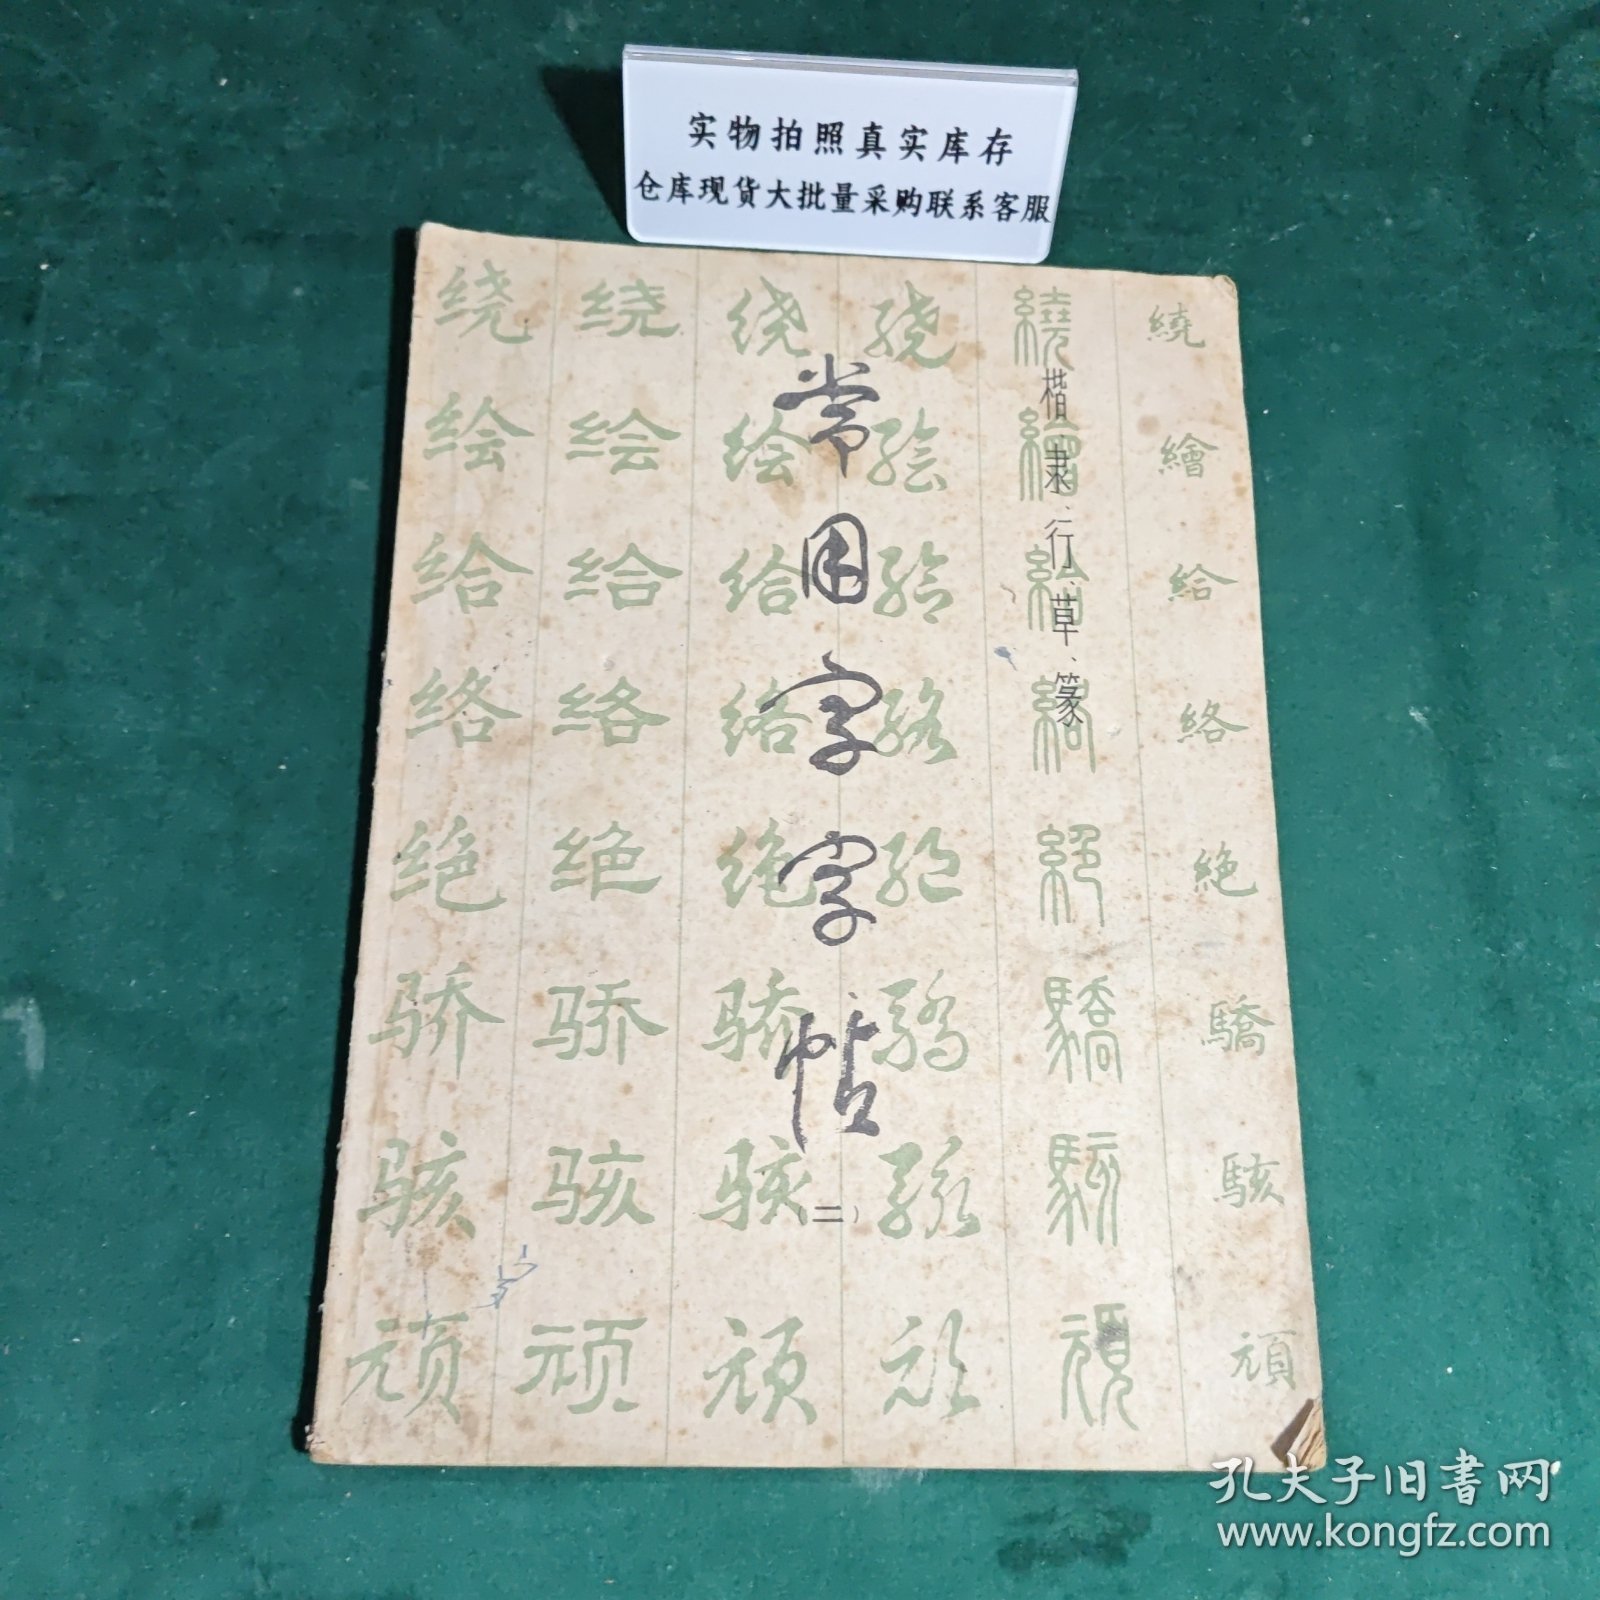 实物拍照真实库存
仓库现货大批量采购联系客服
绕 绕 绕 绕 繞 繞
绘 绘 绘 绘 繪 繪
给 给 给 给 給 給
络 络 络 络 絡 絡
绝 绝 绝 绝 絕 絶
骄 骄 骄 骄 驕 驕
骇 骇 骇 骇 駭 駭
顽 顽 顽 顽 頑 頑
常用字字帖
(二)
楷、隶、行、草、篆
孔夫子旧书网
www.kongfz.com